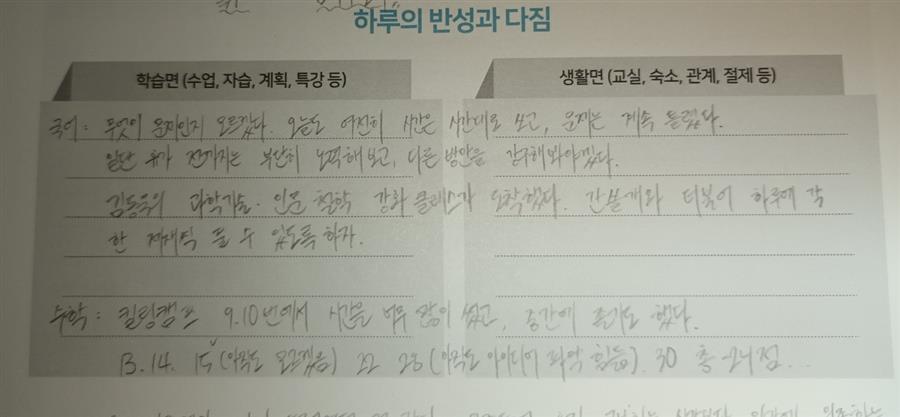 하루의 반성과 다짐
학습면 (수업, 자습, 계획, 특강 등)
생활면 (교실, 숙소, 관계, 절제 등)
국어: 무엇이 문제인지 모르겠다. 오늘도 여전히 시간은 시간대로 쓰고, 문제는 계속 틀렸다.
일단 휴가 전까지는 부단히 노력해보고, 다른 방안을 강구해봐야겠다.
김동욱의 과학기술·인문 철학 강화 클래스가 도착했다. 간쓸개와 더불어 하루에 각
한 제재씩 풀 수 있도록 하자.
수학: 킬링캠프 9.10번에서 시간을 너무 많이 썼고, 중간에 졸기도 했다.
13. 14. 15 (아직도 모르겠음) 22 28 (아직도 아이디어 파악 힘듦). 30 총 -24점...